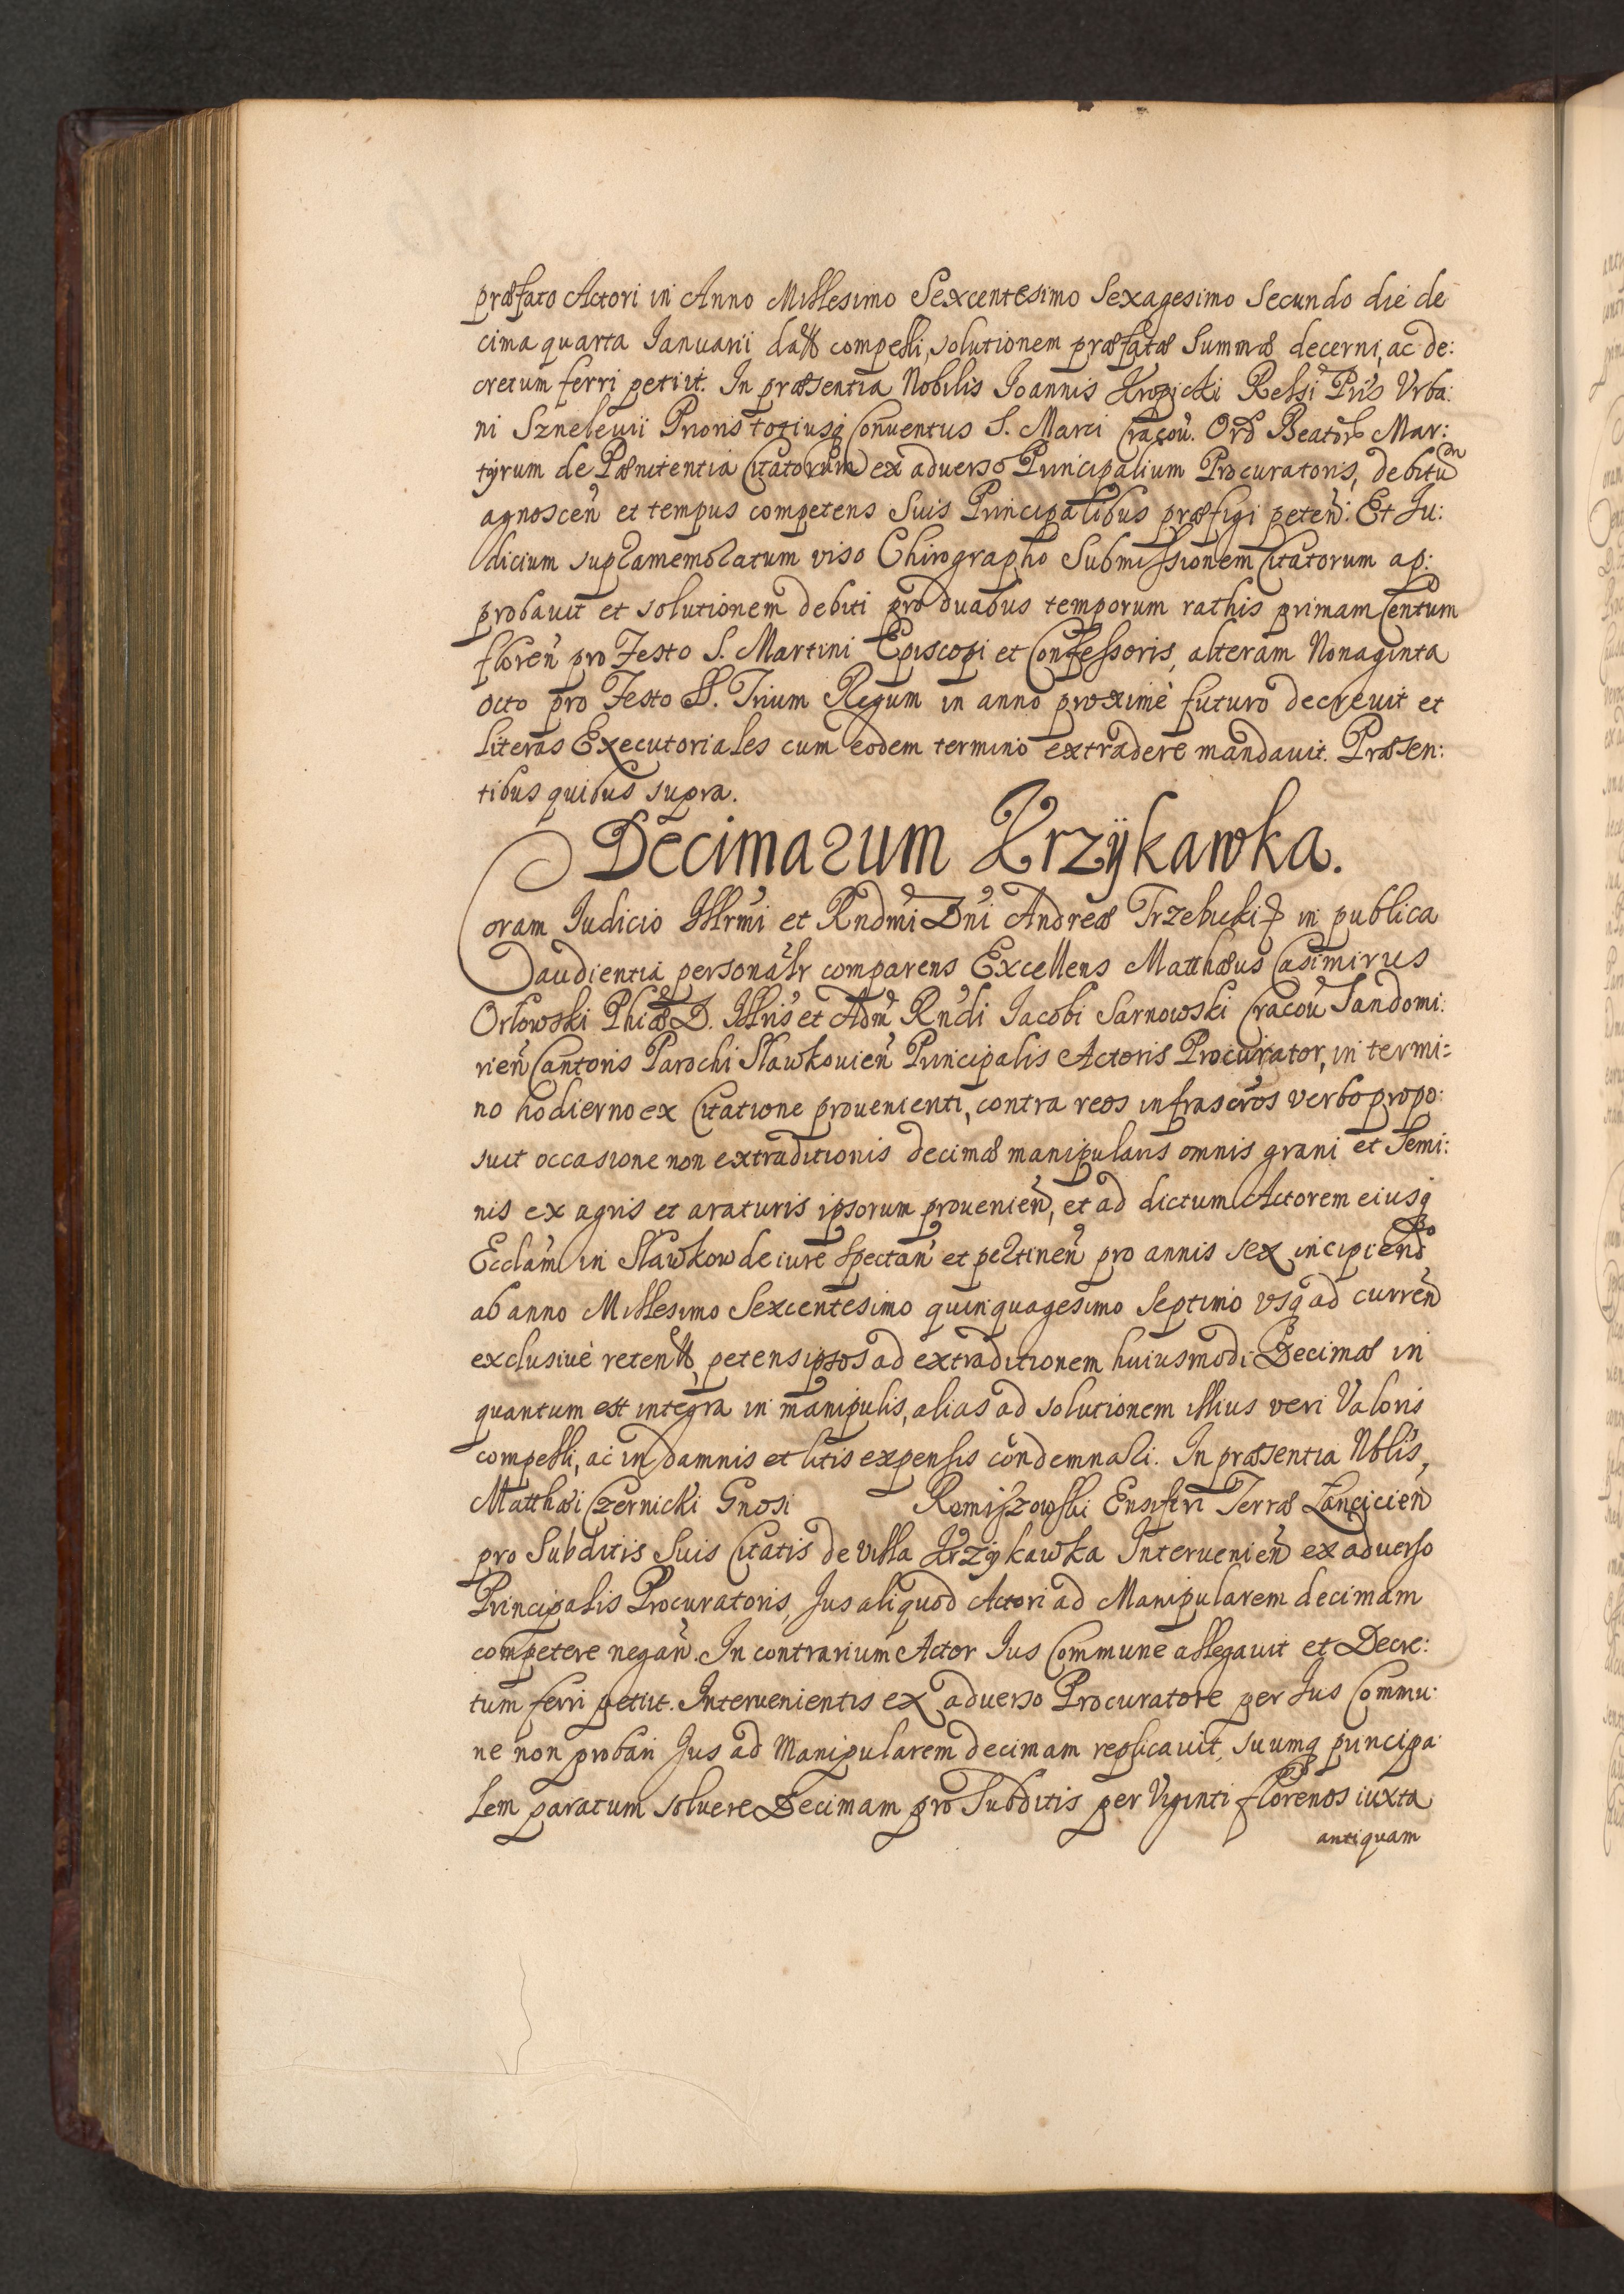 præfato Actori in Anno Millesimo Sexcentesimo Sexagesimo Secundo die de
cima quarta Ianuarii datt compelli, solutionem præfatæ Summæ decerni, ac de:
cretum ferri petiit. In præsentia Nobilis Ioannis Kropicki Relsi Pris Vrba:
ni Sznelevii Prioris totiusq Conuentus S. Marci Cracou. Ord Beator Mar:
tyrum de Pænitentia Citatorum ex aduerso Principalium Procuratoris, debitum
agnoscen et tempus competens Suis Principalibus præfigi peten. Et Iu:
dicium supramemoratum viso Chirographo Submissionem Citatorum ap:
probauit et solutionem debiti pro duabus temporum rathis primam Centum
floren pro Festo S. Martini Episcopi et Confessoris, alteram Nonaginta
octo pro Festo SS. Trium Regum in anno proximè futuro decreuit et
literas Executoriales cum eodem termino extradere mandauit. Præsen:
tibus quibus supra.
Decimarum Krzÿkawka.
Coram Iudicio Illrmi et Rndmi Dni Andreæ Trzebicki in publica
audientia personalr comparens Excellens Matthæus Casimirus
Orłowski Phiæ D. Illris et Adm Rndi Iacobi Sarnowski Cracou Sandomi:
rien Cantoris Parochi Sławkouien Principalis Actoris Procurator, in termi=
no hodierno ex Citatione prouenienti, contra reos infrascros verbo propo:
suit occasione non extraditionis decimæ manipularis omnis grani et Semi:
nis ex agris et araturis ipsorum prouenien, et ad dictum Actorem eiusq
Ecclam in Sławkow de iure Spectan et pertinen pro annis sex incipiendo
ab anno Millesimo Sexcentesimo quinquagesimo Septimo vsq ad curren
exclusiuè retentt, petens ipsos ad extraditionem huiusmodi Decimæ in
quantum est integra in manipulis, alias ad solutionem illius veri Valoris
compelli, ac in damnis et litis expensis condemnari. In præsentia Nblis,
Matthæi Czernicki Gnosi Romiszowski Ensiferi Terræ Lancicien
pro Subditis Suis Citatis de villa Krzÿkawka Interuenien ex aduerso
Principalis Procuratoris, Ius aliquod Actori ad Manipularem decimam
competere negan. In contrarium Actor Ius Commune allegauit et Decre:
tum ferri petiit. Interuenientis ex aduerso Procuratore per Ius Commu:
ne non probari Ius ad Manipularem decimam replicauit, suumq principa:
lem paratum soluere Decimam pro Subditis per Viginti florenos iuxta
antiquam